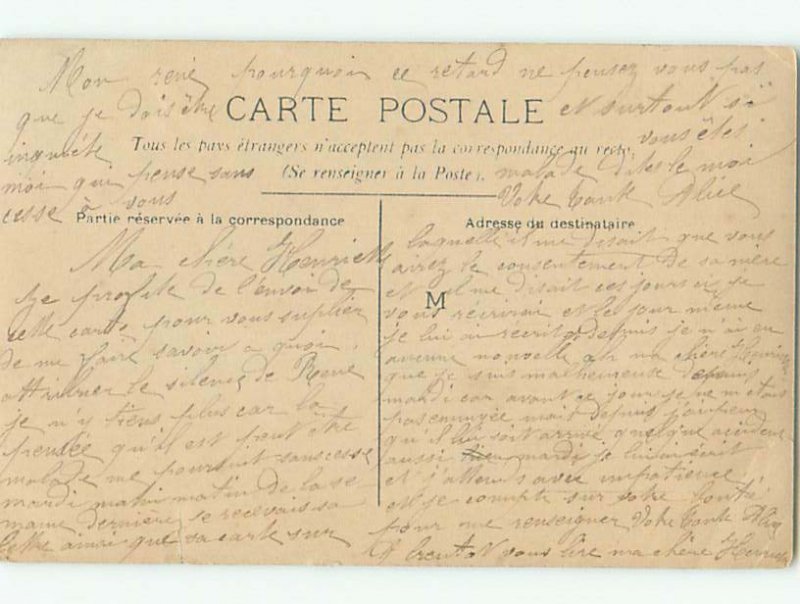 Mon René pourquoi ce retard ne pensez vous pas
que je dois être
CARTE POSTALE
et surtout si
inquiéte
Tous les pays étrangers n'acceptent pas la correspondance au recto,
vous êtes
moi qui pense sans
(Se renseigner à la Poste).
malade dites le moi
cesse à vous
Votre Alice
Partie réservée à la correspondance
Ma chère Henriette
Je profite de l'envoi de
cette carte pour vous suplier
de me faire savoir a quoi
attribuer le silence de René
je n'y tiens plus car la
pensée qu'il est peut être
malade me poursuit sans cesse
mardi matin matin de la se
maine dernière je recevais sa
lettre ainsi que sa carte sur
Adresse du destinataire
M
laquelle il me disait que vous
aviez le consentement de sa mère
et il me disait ces jours ci je
vous récrirai et le jour même
je lui ai récrit depuis je n'ai eu
aucune nouvelle ah ma chère Henriette
que je suis malheureuse depuis
mardi car avant ce jour je ne m'étais
pas ennuyée mais depuis
qu'il lui soit arrivé quelque accident
aussi mardi je lui
et j'attends avec impatience
et je compte sur votre bonté
pour me renseigner Votre Alice
A bientôt vous lire ma chère Henriette